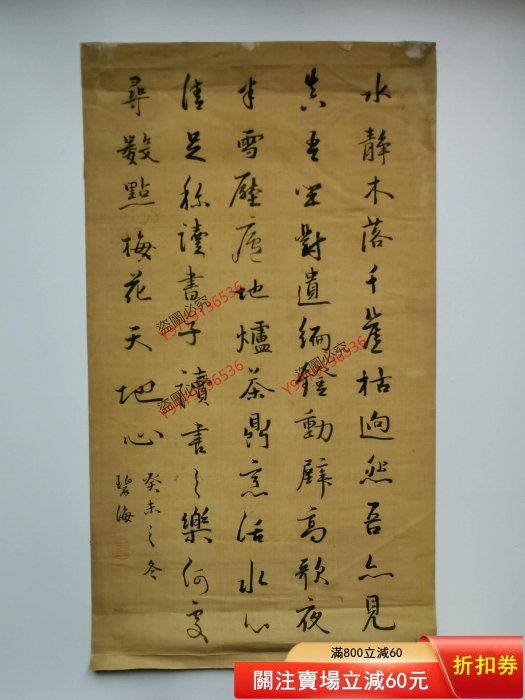 水靜木落千崖枯迥然吾亦見
真吾坐對遺編鐙動壁高歌夜
半雪壓廬地爐茶鼎烹活水心
清足称讀書子讀書之樂何處
尋數點梅花天地心
癸未之冬
碧海
盜圖必究
盜圖必究
盜圖必究
滿800立減60
關注賣場立減60元
折扣券